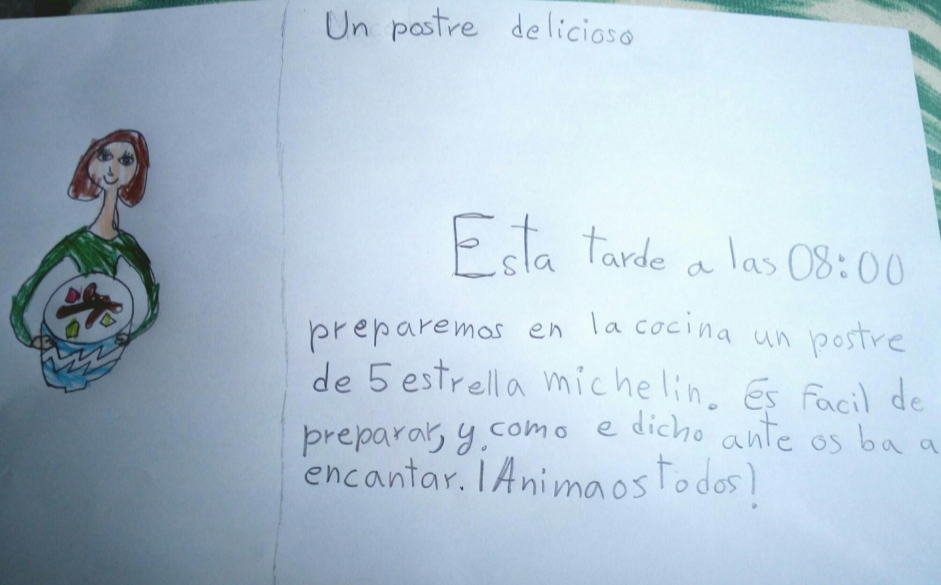 Un postre delicioso
Esta tarde a las 08:00
preparemos en la cocina un postre
de 5 estrella michelin. Es facil de
preparar, y. como e dicho ante os ba a
encantar. ¡Animaos todos!